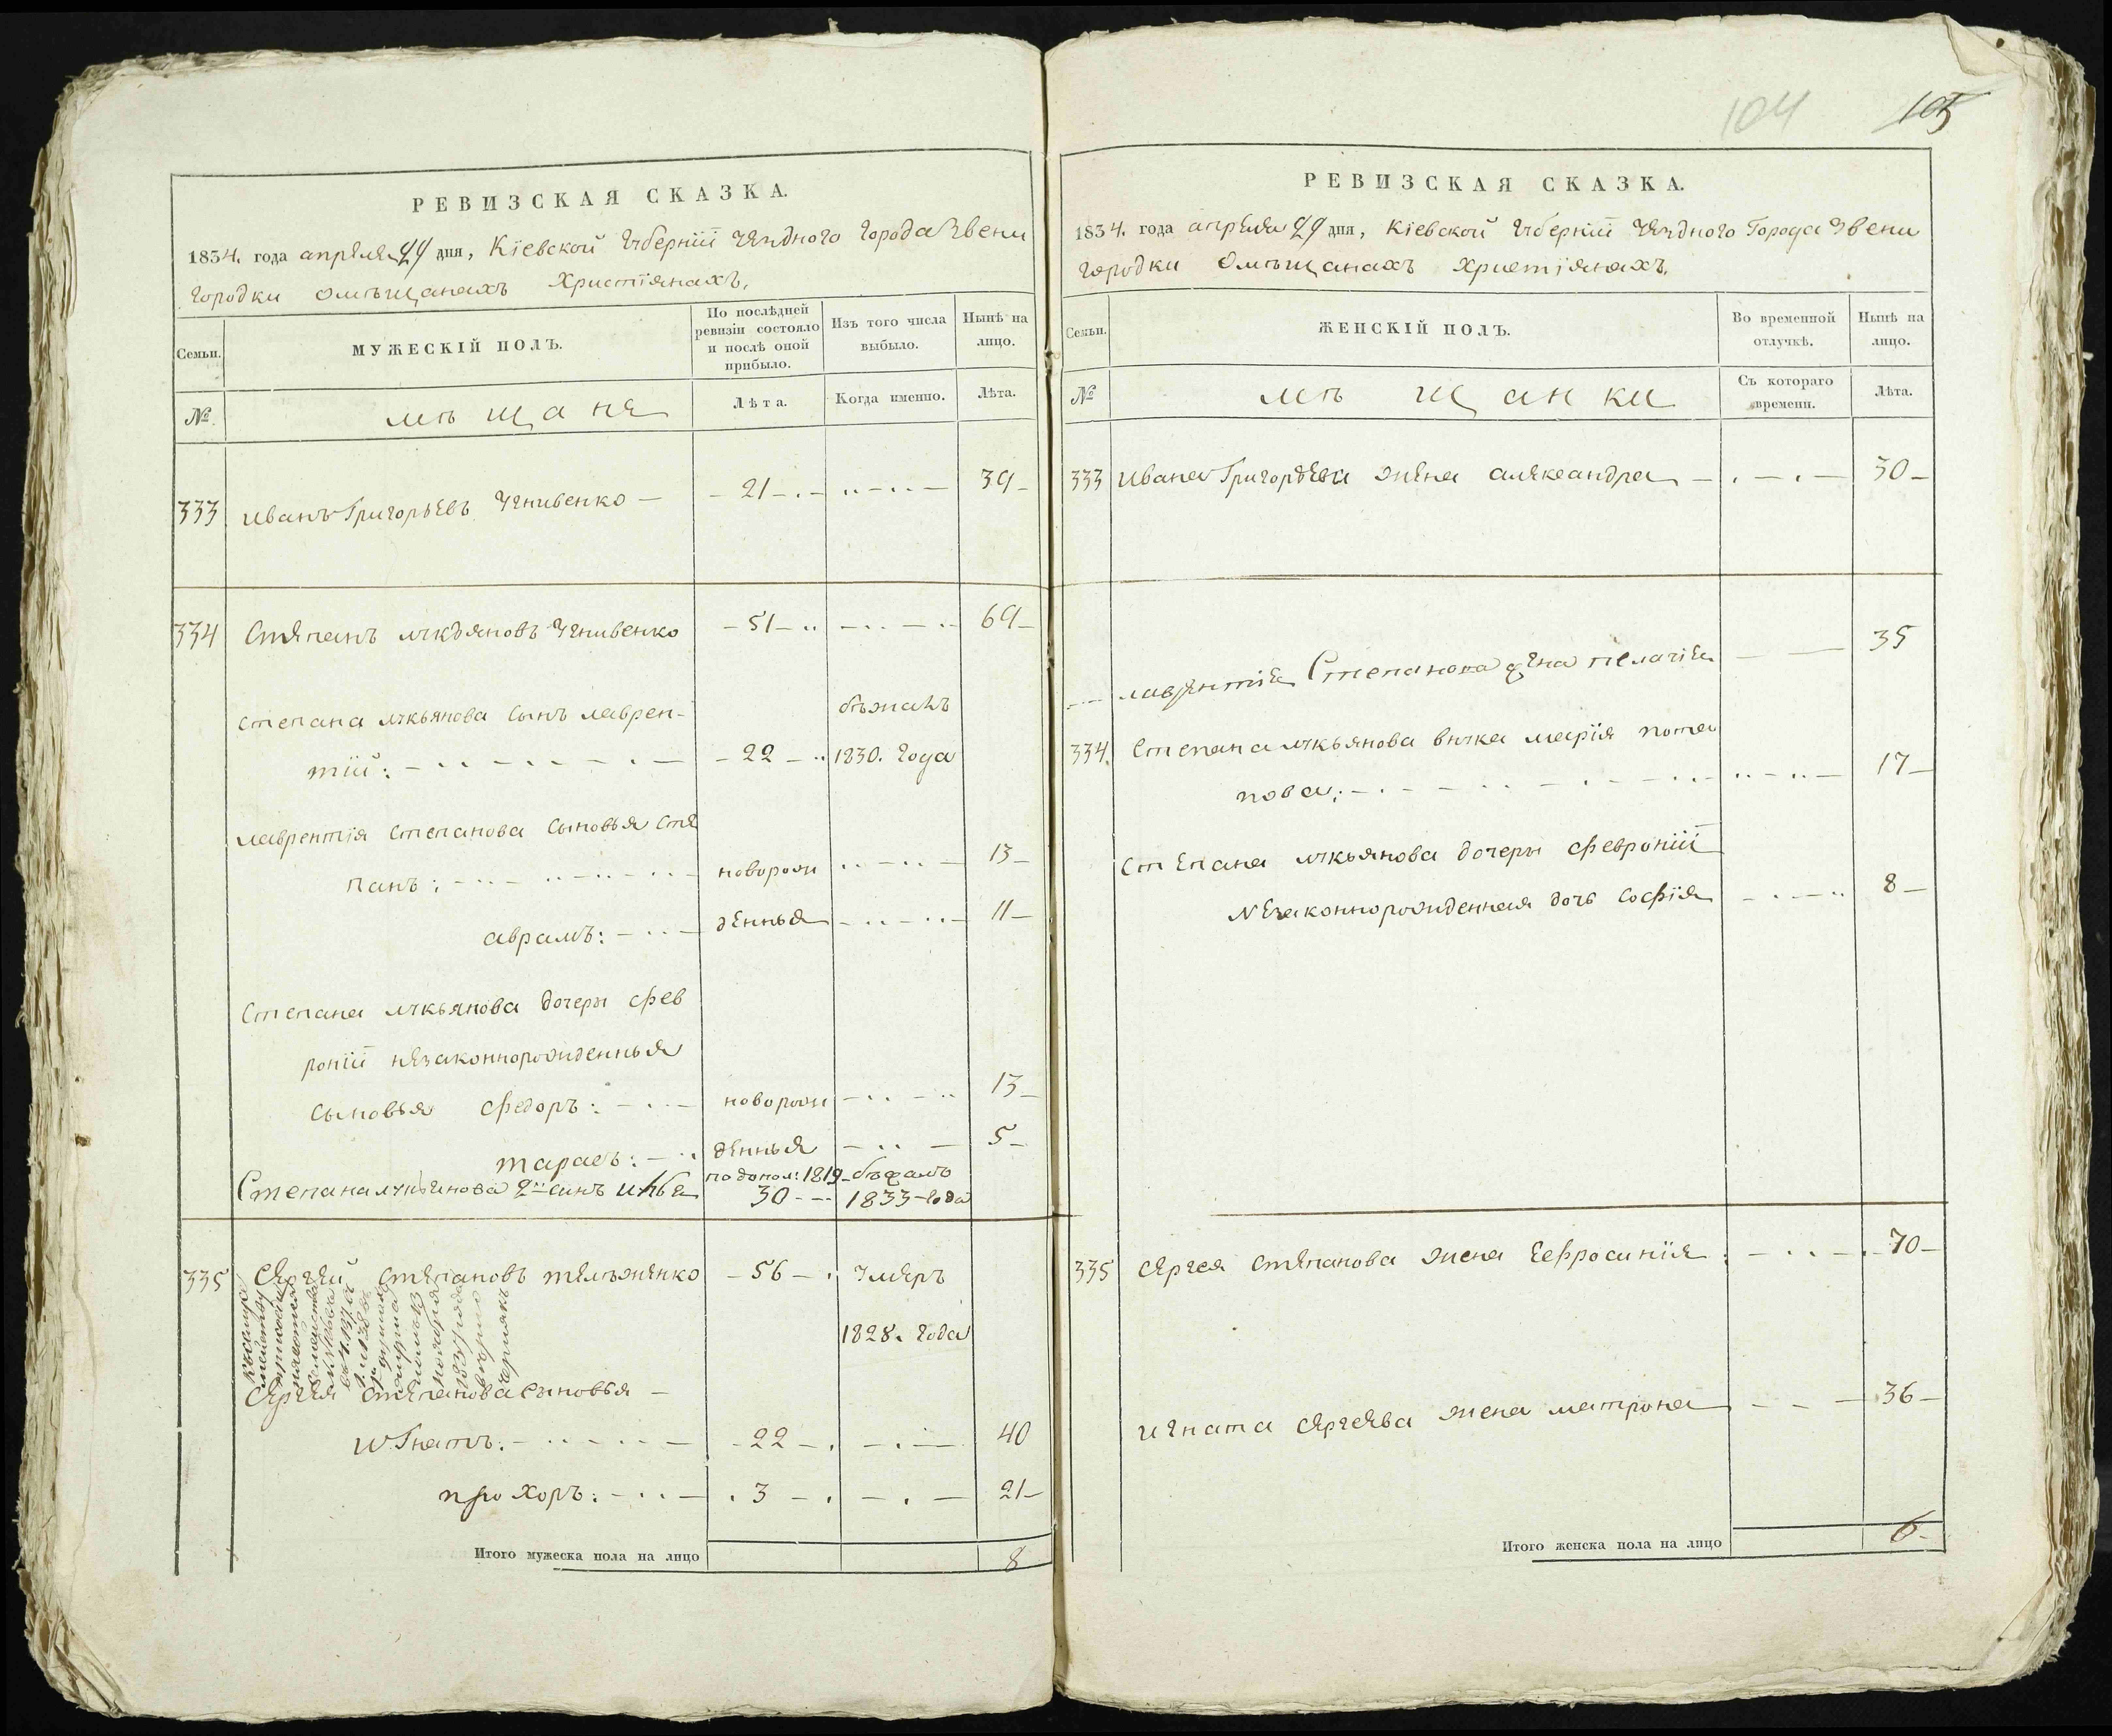 РЕВИЗСКАЯ СКАЗКА.
1834. года апреля 29 дня, Кіевской Губерніи Уезднаго Города Звени
городки омѣщанахъ Христіянахъ,
Семьи.
МУЖЕСКІЙ ПОЛЪ.
По послѣдней ревизіи состояло и послѣ оной прибыло.
Изъ того числа выбыло.
Нынѣ на лицо.
№
мѣщане
Лѣта.
Когда именно.
Лѣта.
333 иванъ Григорьевъ — 21 — 39
334 Степанъ лукьяновъ — 51 — 69
степана лукьянова сынъ лаврен-
тій: — 22 — бѣжалъ 1830. года
лаврентія степанова сыновья сте
панъ: — новорож — 13
аврамъ: — денныя — 11
Степана лукьянова дочеры фев
роніи незаконнорожденныя
сыновья федоръ: — новорож — 13
тарасъ: — денныя — 5
Степана лукьянова 2й синъ по допол: 1819 30 — бѣжалъ 1833 года
335 Сергей степановъ — 56 — умеръ
1828. года
Сергея степанова сыновья —
игнатъ: — 22 — 40
прохоръ: — 3 — 21
Итого мужеска пола на лицо 8
104 105
РЕВИЗСКАЯ СКАЗКА.
1834. года апреля 29 дня, Кіевской Губерніи Уезднаго Города Звени
городки омѣщанахъ христіянахъ,
Семьи.
ЖЕНСКІЙ ПОЛЪ.
Во временной отлучкѣ.
Нынѣ на лицо.
№
мѣщанки
Съ котораго времени.
Лѣта.
333 ивана Григорьева жена александра — 30
лаврентія Степанова жена пелагія — 35
334. Степана лукьянова внука марія пота
пова: — 17
степана лукьянова дочеры февроніи
незаконнорожденная дочь софія — 8
335 сергея степанова жена еефросинія: — 70
игната сергеева жена матрона — 36
Итого женска пола на лицо 6